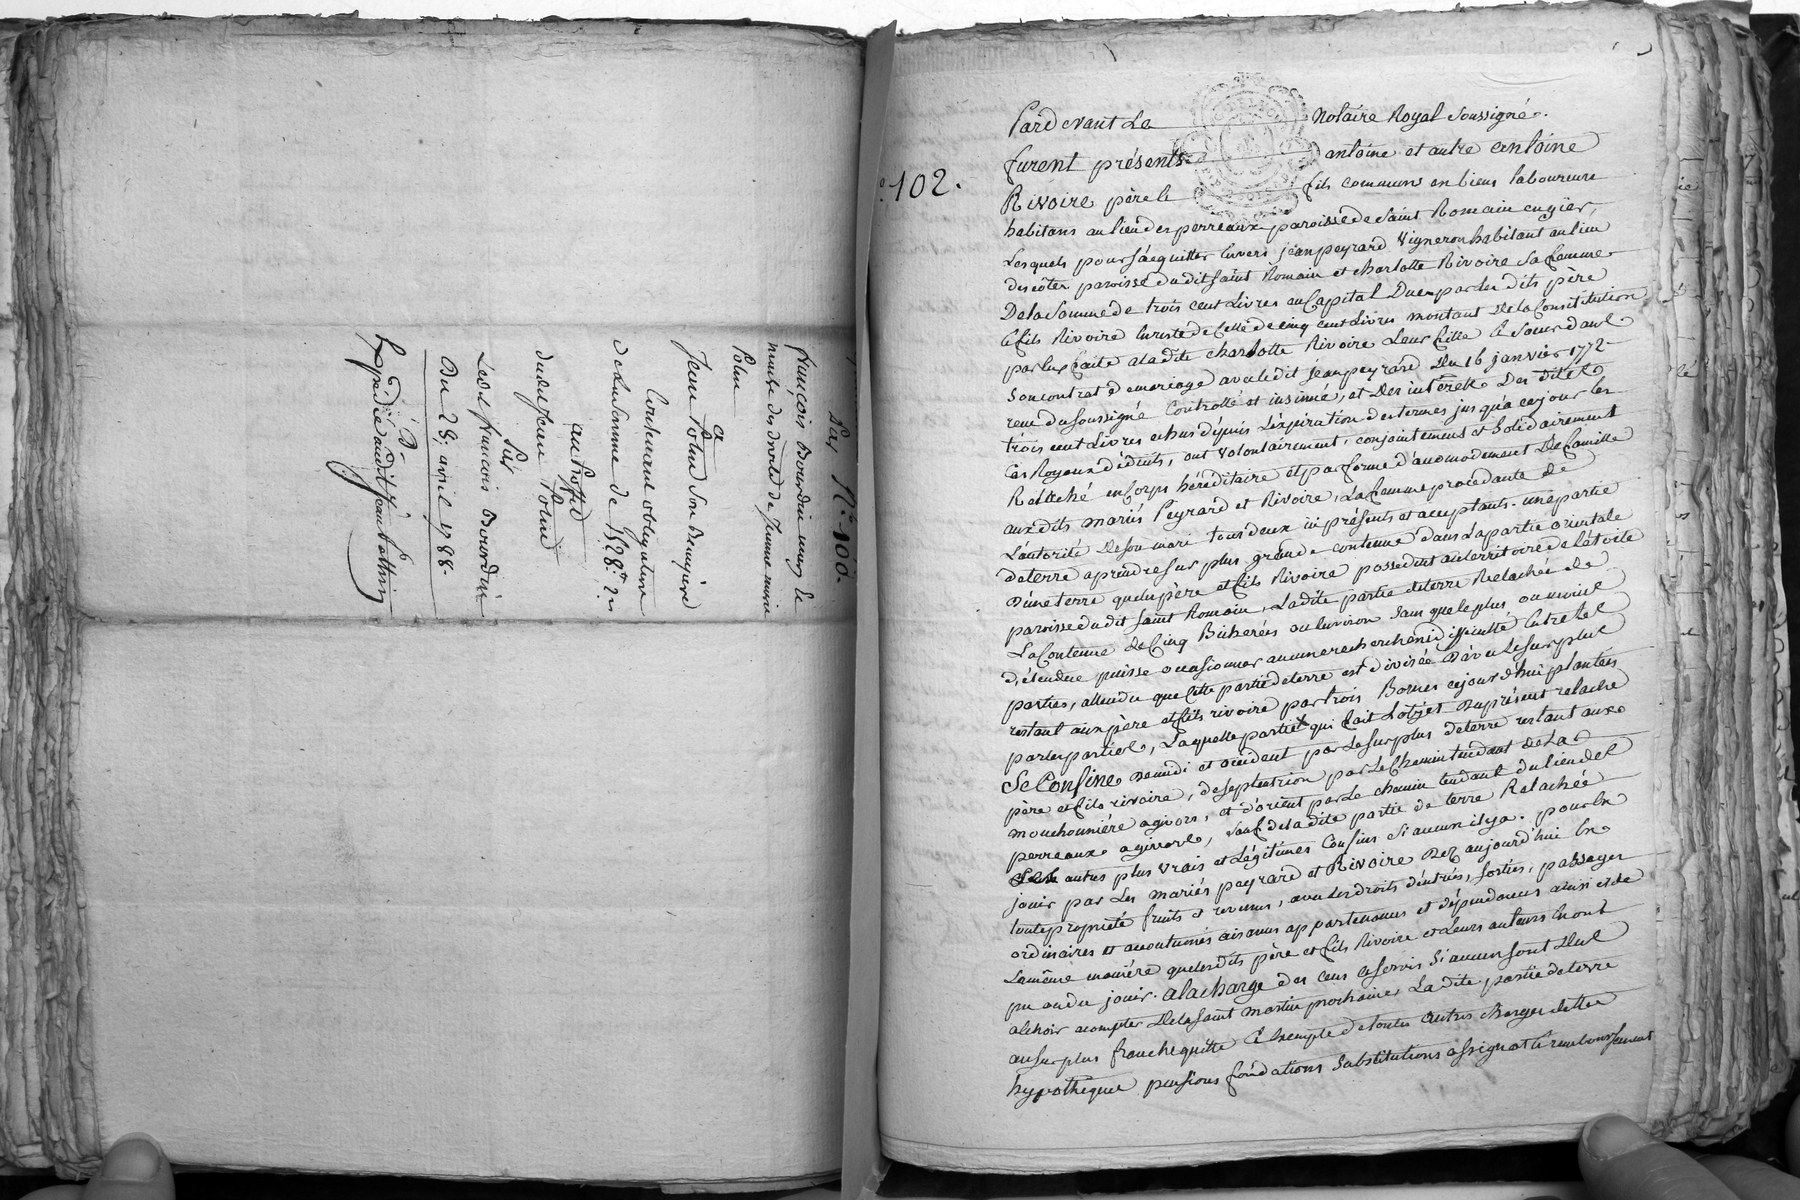 Par N.° 100.
François Bourdin
des droits de Jeanne marie
Poton
a
Jean Poton Son Beaupère
Contenant obligation
de la Somme de 1528.# 2.s
au Profit
dudit Jean Poton
Par
Led. françois Bourdin
Du 28: avril 1788.
Expédié audit Jean
N.° 102.
Pardevant Le Notaire Royal Soussigné.
furent présents antoine et autre antoine
Rivoire père et fils communs en biens laboureurs
habitans au lieu des perreaux paroisse de Saint Romain en gier,
Lesquels pour s'acquitter envers jean peyrard Vigneron habitant au lieu
des côtes paroisse dudit Saint Romain et charlotte Rivoire Sa femme
De la Somme de trois cent Livres en Capital Due par les dits père
et fils Rivoire Cunsté de Celle de cinq cent Livres montant De la Constitution
par eux faite a la dite charlotte Rivoire Leur fille et Soeur dans
Son contrat de mariage avec ledit jean peyrard Du 16 janvier 1772
reçu du Soussigné Controllé et insinué, et Des intérêts Des dites
trois cent Livres echus depuis L'expiration des termes jusqu'a ce jour les
Cas Royaux déduits, ont Volontairement, conjointement et Solidairement
Relaché en Corps héréditaire et par forme d'accomodement De famille
auxdits mariés Peyrard et Rivoire, La femme procedante de
L'autorité De Son mari tous deux ici présents et acceptants. une partie
de terre a prendre Sur plus grande contenue dans La partie orientale
D'une terre que les père et fils Rivoire possedent au territoire de l'étoile
paroisse dudit Saint Romain, La dite partie de terre Relachée de
La Contenue de Cinq Bicherées ou environ Sans que le plus ou moins
D'étendue puisse occasionner aucune recherche ni difficulté Entre les
parties, attendu que Cette partie de terre est divisée D'avec Le Surplus
restant aux père et fils rivoire par trois Bornes cejourd'hui plantées
par les parties, Laquelle partie qui fait L'objet Du présent relache
Se Confine De midi et occident par Le Surplus de terre restant aux
père et fils rivoire, de Septentrion par Le Chemin tendant de La
mouchounière a givors, et d'orient par Le chemin tendant du lieu des
perreaux a givors, Sauf de la dite partie de terre Relachée
Ses autres plus Vrais et Légitimes Confins Si aucun il y a. pour en
jouir par Les mariés peyrard et Rivoire Dez aujourd'hui En
toute propriété fruits et revenus, avec les droits d'entrées, Sorties, passages
ordinaires et accoutumés aisances appartenances et dépendances ainsi et de
La même manière que lesdits père et fils Rivoire et Leurs auteurs En ont
pu ou du jouir. a La charge des Cens et Servis Si aucuns Sont Dus
a échoir a compter De la Saint Martin prochaine, La dite partie de terre
au Surplus franche quitte et Exempte de toutes autres charges dettes
hypothèques pensions fondations Substitutions assignat et remboursement